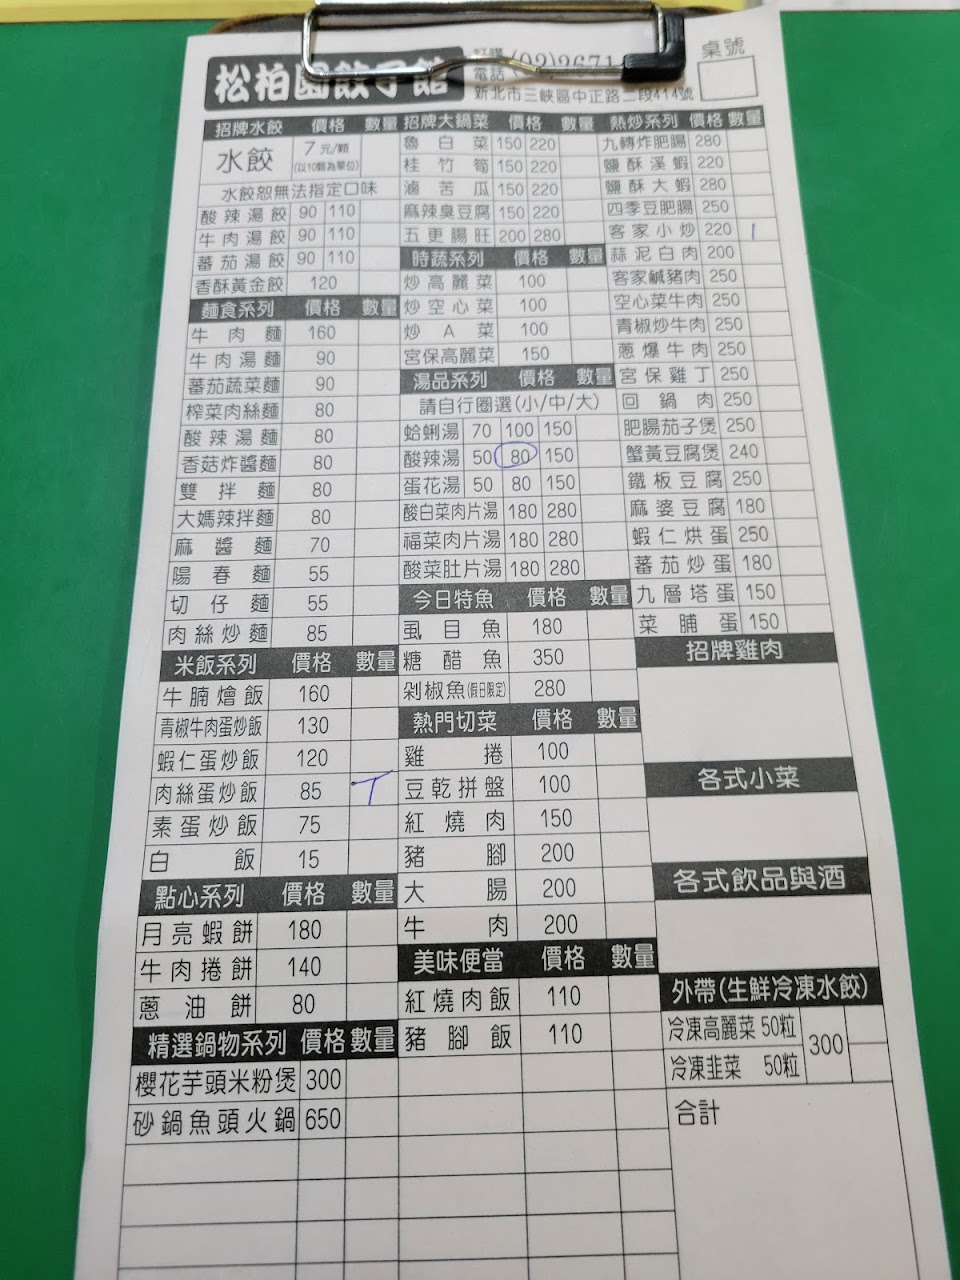 松柏園餃子館
訂購電話 (02)2671
新北市三峽區中正路二段414號
桌號
招牌水餃 價格 數量
水餃 7元/顆 (以10顆為單位)
水餃恕無法指定口味
酸辣湯餃 90 110
牛肉湯餃 90 110
蕃茄湯餃 90 110
香酥黃金餃 120
麵食系列 價格 數量
牛肉麵 160
牛肉湯麵 90
蕃茄蔬菜麵 90
榨菜肉絲麵 80
酸辣湯麵 80
香菇炸醬麵 80
雙拌麵 80
大媽辣拌麵 80
麻醬麵 70
陽春麵 55
切仔麵 55
肉絲炒麵 85
米飯系列 價格 數量
牛腩燴飯 160
青椒牛肉蛋炒飯 130
蝦仁蛋炒飯 120
肉絲蛋炒飯 85
素蛋炒飯 75
白飯 15
點心系列 價格 數量
月亮蝦餅 180
牛肉捲餅 140
蔥油餅 80
精選鍋物系列 價格 數量
櫻花芋頭米粉煲 300
砂鍋魚頭火鍋 650
招牌大鍋菜 價格 數量
魯白菜 150 220
桂竹筍 150 220
滷苦瓜 150 220
麻辣臭豆腐 150 220
五更腸旺 200 280
時蔬系列 價格 數量
炒高麗菜 100
炒空心菜 100
炒A菜 100
宮保高麗菜 150
湯品系列 價格 數量
請自行圈選(小/中/大)
蛤蜊湯 70 100 150
酸辣湯 50 80 150
蛋花湯 50 80 150
酸白菜肉片湯 180 280
福菜肉片湯 180 280
酸菜肚片湯 180 280
今日特魚 價格 數量
虱目魚 180
糖醋魚 350
剁椒魚(假日限定) 280
熱門切菜 價格 數量
雞捲 100
豆乾拼盤 100
紅燒肉 150
豬腳 200
大腸 200
牛肉 200
美味便當 價格 數量
紅燒肉飯 110
豬腳飯 110
熱炒系列 價格 數量
九轉炸肥腸 280
鹽酥溪蝦 220
鹽酥大蝦 280
四季豆肥腸 250
客家小炒 220 1
蒜泥白肉 200
客家鹹豬肉 250
空心菜牛肉 250
青椒炒牛肉 250
蔥爆牛肉 250
宮保雞丁 250
回鍋肉 250
肥腸茄子煲 250
蟹黃豆腐煲 240
鐵板豆腐 250
麻婆豆腐 180
蝦仁烘蛋 250
蕃茄炒蛋 180
九層塔蛋 150
菜脯蛋 150
招牌雞肉
各式小菜
各式飲品與酒
外帶(生鮮冷凍水餃)
冷凍高麗菜 50粒 300
冷凍韭菜 50粒
合計